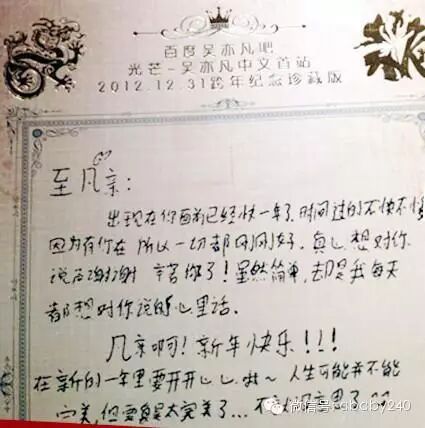 百度吴亦凡吧
光芒-吴亦凡中文首站
2012.12.31跨年纪念珍藏版
至凡亲:
出现在你面前已经快一年了 时间过的不快不慢
因为有你在 所以一切都刚刚好. 真心想对你
说声谢谢 辛苦你了! 虽然简单, 却是我每天
都想对你说的心里话.
凡亲啊! 新年快乐!!!
在新的一年里要开开心心哦~ 人生可能并不能
完美, 但要是太完美了...
微信号: abcby240